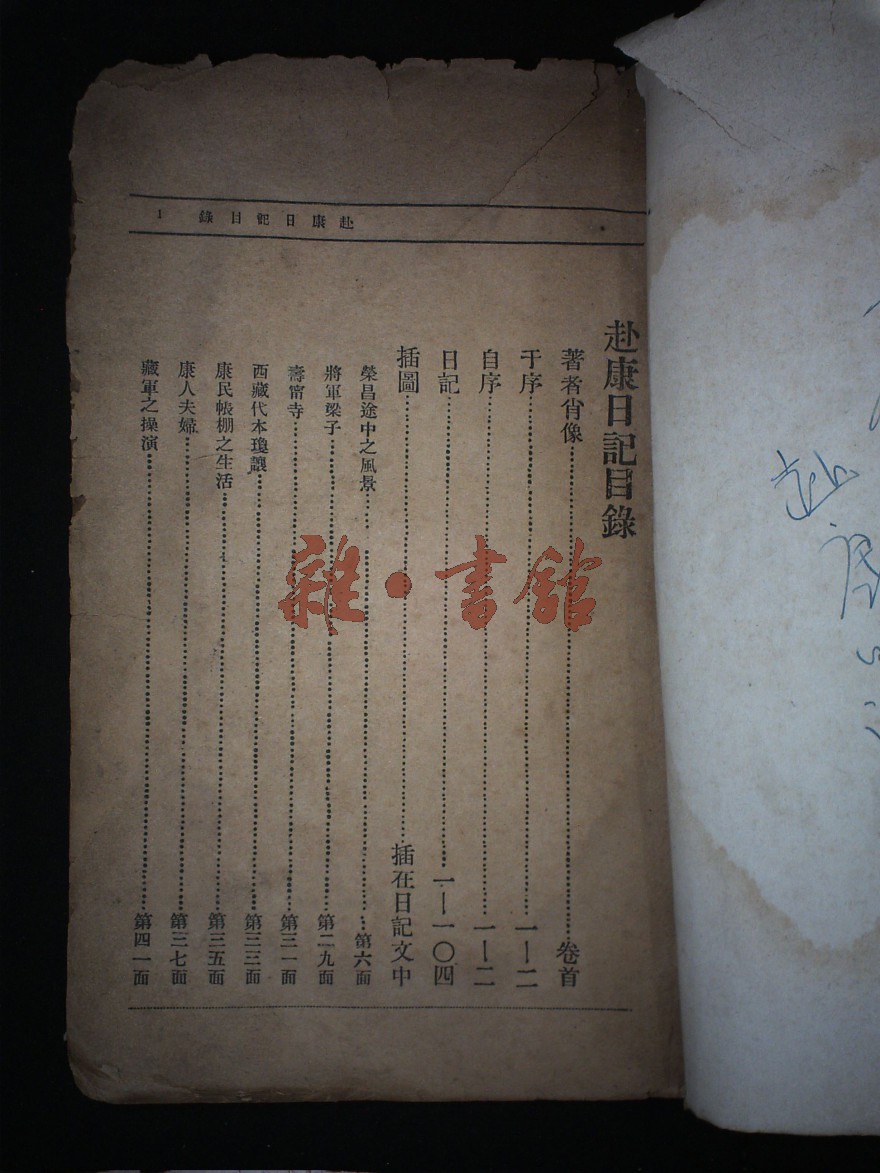 赴康日記目錄 1
赴康日記目錄
著者肖像……卷首
于序……一—二
自序……一—二
日記……一—一〇四
插圖……插在日記文中
榮昌途中之風景……第六面
將軍梁子……第二九面
壽甯寺……第三一面
西藏代本瓊讓……第三三面
康民帳棚之生活……第三五面
康人夫婦……第三七面
藏軍之操演……第四一面
雜·書館
赴康日